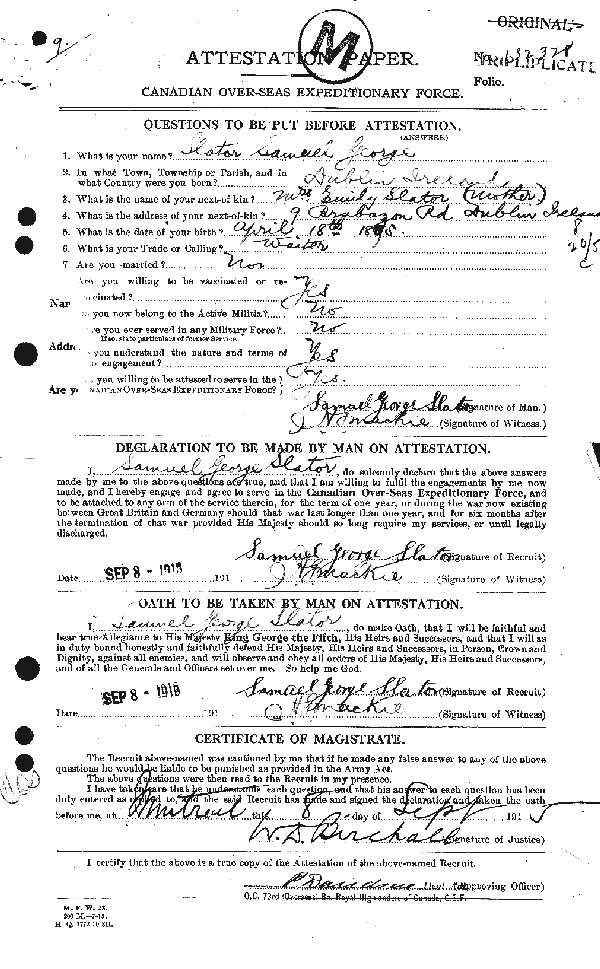 ORIGINAL
M
ATTESTATION PAPER.
No.
TRIPLICATE
Folio.
CANADIAN OVER-SEAS EXPEDITIONARY FORCE.
QUESTIONS TO BE PUT BEFORE ATTESTATION.
(ANSWERS.)
1. What is your name? Slator Samuel George
2. In what Town, Township or Parish, and in
what Country were you born? Dublin Ireland
3. What is the name of your next-of-kin? Mrs Emily Slator (Mother)
4. What is the address of your next-of-kin? 9 Brabazon Rd. Dublin Ireland
5. What is the date of your birth? April 18th 1895
6. What is your Trade or Calling? Waiter
7. Are you married? No
Are you willing to be vaccinated or re-
Nar cinated? Yes
you now belong to the Active Militia? No
e you ever served in any Military Force? No
If so, state particulars of former Service.
Addre you understand the nature and terms of
engagement? Yes
you willing to be attested to serve in the
Are y NADIAN OVER-SEAS EXPEDITIONARY FORCE? Yes.
Samuel George Slator (Signature of Man.)
Mackie (Signature of Witness.)
DECLARATION TO BE MADE BY MAN ON ATTESTATION.
I, Samuel George Slator, do solemnly declare that the above answers
made by me to the above questions are true, and that I am willing to fulfil the engagements by me now
made, and I hereby engage and agree to serve in the Canadian Over-Seas Expeditionary Force, and
to be attached to any arm of the service therein, for the term of one year, or during the war now existing
between Great Britain and Germany should that war last longer than one year, and for six months after
the termination of that war provided His Majesty should so long require my services, or until legally
discharged.
Samuel George Slator (Signature of Recruit)
Date SEP 8 - 1915 191 Mackie (Signature of Witness)
OATH TO BE TAKEN BY MAN ON ATTESTATION.
I, Samuel George Slator, do make Oath, that I will be faithful and
bear true Allegiance to His Majesty King George the Fifth, His Heirs and Successors, and that I will as
in duty bound honestly and faithfully defend His Majesty, His Heirs and Successors, in Person, Crown and
Dignity, against all enemies, and will observe and obey all orders of His Majesty, His Heirs and Successors,
and of all the Generals and Officers set over me. So help me God.
Samuel George Slator (Signature of Recruit)
Date SEP 8 - 1915 191 Mackie (Signature of Witness)
CERTIFICATE OF MAGISTRATE.
The Recruit above-named was cautioned by me that if he made any false answer to any of the above
questions he would be liable to be punished as provided in the Army Act.
The above questions were then read to the Recruit in my presence.
I have taken care that he understands each question, and that his answer to each question has been
duly entered as replied to, and the said Recruit has made and signed the declaration and taken the oath
before me, at Montreal this 8 day of Sept 1915
(Signature of Justice)
I certify that the above is a true copy of the Attestation of the above-named Recruit.
(Approving Officer)
O.C. 73rd (Overseas) Bn. Royal Highlanders of Canada, C.E.F.
M. F. W. 23.